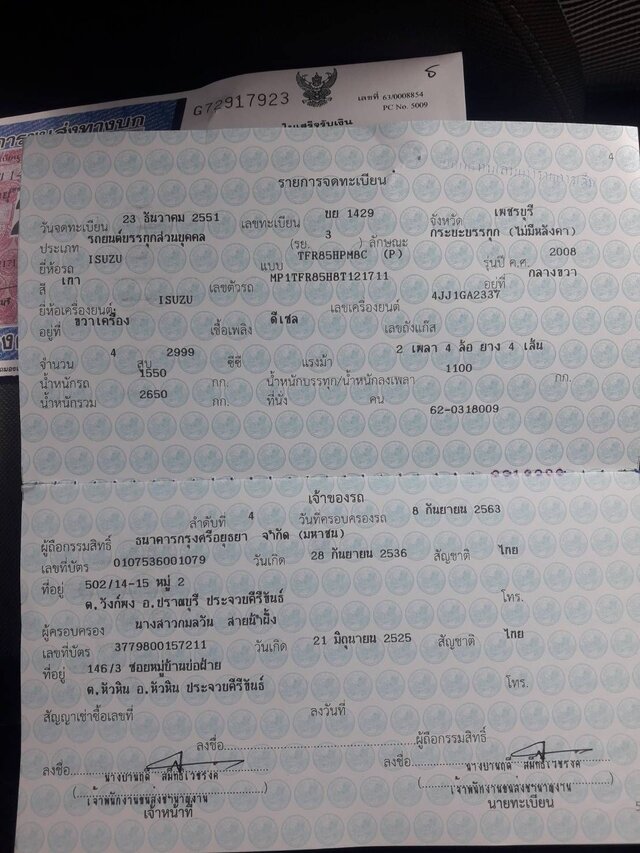 G72917923
เลขที่ 63/0008854
PC No. 5009
ใบเสร็จรับเงิน
4
รายการจดทะเบียน
วันจดทะเบียน 23 ธันวาคม 2551 เลขทะเบียน บย 1429 จังหวัด เพชรบุรี
ประเภท รถยนต์บรรทุกส่วนบุคคล (รย. 3 ) ลักษณะ กระบะบรรทุก (ไม่มีหลังคา)
ยี่ห้อรถ ISUZU แบบ TFR85HPM8C (P) รุ่นปี ค.ศ. 2008
สี เทา เลขตัวรถ MP1TFR85H8T121711 อยู่ที่ กลางขวา
ยี่ห้อเครื่องยนต์ ISUZU เลขเครื่องยนต์ 4JJ1GA2337
อยู่ที่ ขวาเครื่อง เชื้อเพลิง ดีเซล เลขถังแก๊ส
จำนวน 4 สูบ 2999 ซีซี แรงม้า 2 เพลา 4 ล้อ ยาง 4 เส้น
น้ำหนักรถ 1550 กก. น้ำหนักบรรทุก/น้ำหนักลงเพลา 1100 กก.
น้ำหนักรวม 2650 กก. ที่นั่ง คน
62-0318009
เจ้าของรถ
ลำดับที่ 4 วันที่ครอบครองรถ 8 กันยายน 2563
ผู้ถือกรรมสิทธิ์ ธนาคารกรุงศรีอยุธยา จำกัด (มหาชน)
เลขที่บัตร 0107536001079 วันเกิด 28 กันยายน 2536 สัญชาติ ไทย
ที่อยู่ 502/14-15 หมู่ 2
ต.วังก์พง อ.ปราณบุรี ประจวบคีรีขันธ์ โทร.
ผู้ครอบครอง นางสาวกมลวัน สายน้ำผึ้ง
เลขที่บัตร 3779800157211 วันเกิด 21 มิถุนายน 2525 สัญชาติ ไทย
ที่อยู่ 146/3 ซอยหมู่บ้านบ่อฝ้าย
ต.หัวหิน อ.หัวหิน ประจวบคีรีขันธ์ โทร.
สัญญาเช่าซื้อเลขที่ ลงวันที่
ลงชื่อ ผู้ถือกรรมสิทธิ์
ลงชื่อ ลงชื่อ
เจ้าพนักงานขนส่งชำนาญงาน เจ้าพนักงานขนส่งชำนาญงาน
เจ้าหน้าที่ นายทะเบียน
5